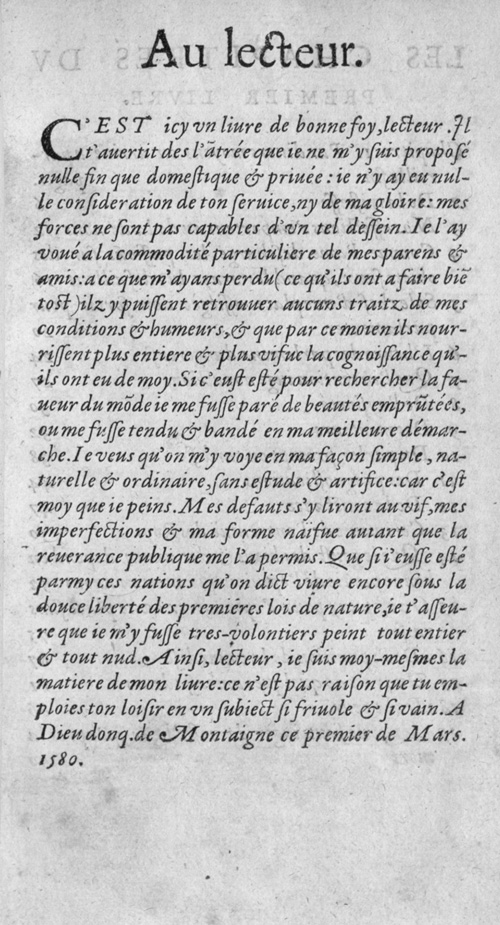 Au lecteur.
C'EST icy vn liure de bonne foy, lecteur. Il
t'auertit des l'ãtrée que ie ne m'y suis proposé
nulle fin que domestique & priuée: ie n'y ay eu nul-
le consideration de ton seruice, ny de ma gloire: mes
forces ne sont pas capables d'vn tel dessein. Ie l'ay
voué a la commodité particuliere de mes parens &
amis: a ce que m'ayans perdu (ce qu'ils ont a faire biẽ
tost) ilz y puissent retrouuer aucuns traitz de mes
conditions & humeurs, & que par ce moien ils nour-
rissent plus entiere & plus vifue la cognoissance qu'-
ils ont eu de moy. Si c'eust esté pour rechercher la fa-
ueur du mõde ie me fusse paré de beautés emprũtées,
ou me fusse tendu & bandé en ma meilleure démar-
che. Ie veus qu'on m'y voye en ma façon simple, na-
turelle & ordinaire, sans estude & artifice: car c'est
moy que ie peins. Mes defauts s'y liront au vif, mes
imperfections & ma forme naifue autant que la
reuerance publique me l'a permis. Que si i'eusse esté
parmy ces nations qu'on dict viure encore sous la
douce liberté des premiéres lois de nature, ie t'asseu-
re que ie m'y fusse tres-volontiers peint tout entier
& tout nud. Ainsi, lecteur, ie suis moy-mesmes la
matiere de mon liure: ce n'est pas raison que tu em-
ploies ton loisir en vn subiect si friuole & si vain. A
Dieu donq. de Montaigne ce premier de Mars.
1580.